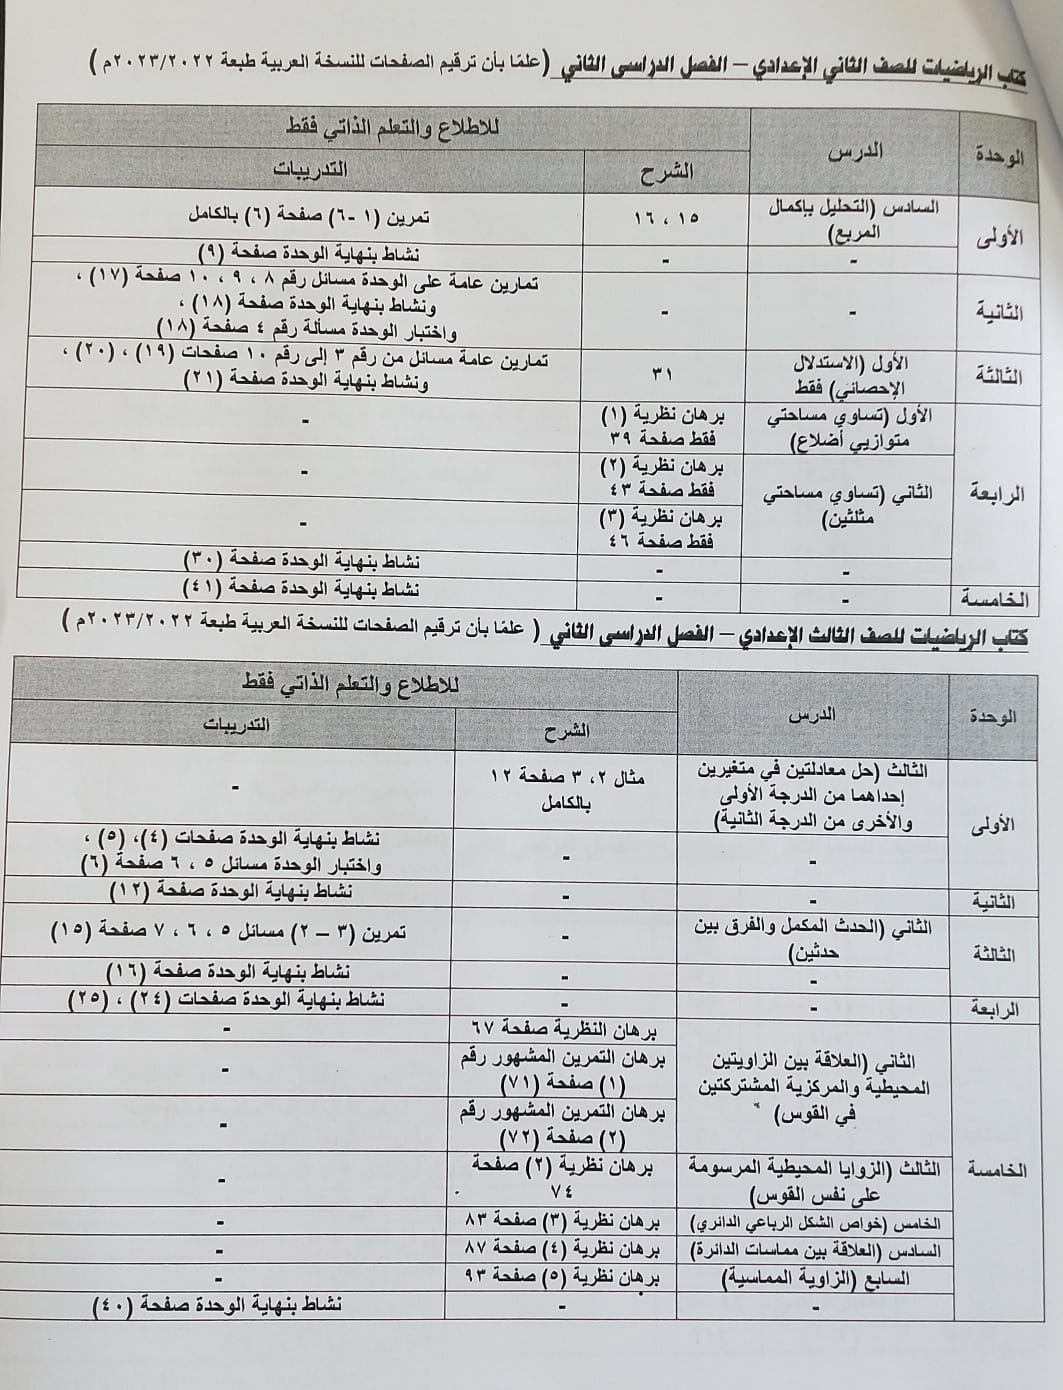 كتاب الرياضيات للصف الثاني الإعدادي – الفصل الدراسى الثاني (علمًا بأن ترقيم الصفحات للنسخة العربية طبعة ٢٠٢٣/٢٠٢٢م)
الوحدة
الدرس
للاطلاع والتعلم الذاتي فقط
الشرح
التدريبات
الأولى
السادس (التحليل بإكمال
المربع)
١٥ ، ١٦
تمرين (١ -٦) صفحة (٦) بالكامل
-
-
نشاط بنهاية الوحدة صفحة (٩)
الثانية
-
-
تمارين عامة على الوحدة مسائل رقم ٨ ، ٩ ، ١٠ صفحة (١٧) ،
ونشاط بنهاية الوحدة صفحة (١٨) ،
واختبار الوحدة مسألة رقم ٤ صفحة (١٨)
الثالثة
الأول (الاستدلال
الإحصائي) فقط
٣١
تمارين عامة مسائل من رقم ٣ إلى رقم ١٠ صفحات (١٩) ، (٢٠) ،
ونشاط بنهاية الوحدة صفحة (٢١)
الرابعة
الأول (تساوي مساحتي
متوازيي أضلاع)
برهان نظرية (١)
فقط صفحة ٣٩
-
الثاني (تساوي مساحتي
مثلثين)
برهان نظرية (٢)
فقط صفحة ٤٣
-
برهان نظرية (٣)
فقط صفحة ٤٦
-
-
-
نشاط بنهاية الوحدة صفحة (٣٠)
الخامسة
-
-
نشاط بنهاية الوحدة صفحة (٤١)
كتاب الرياضيات للصف الثالث الإعدادي – الفصل الدراسى الثاني ( علمًا بأن ترقيم الصفحات للنسخة العربية طبعة ٢٠٢٣/٢٠٢٢م )
الوحدة
الدرس
للاطلاع والتعلم الذاتي فقط
الشرح
التدريبات
الأولى
الثالث (حل معادلتين في متغيرين
إحداهما من الدرجة الأولى
والأخرى من الدرجة الثانية)
مثال ٢، ٣ صفحة ١٢
بالكامل
-
-
-
نشاط بنهاية الوحدة صفحات (٤)، (٥) ،
واختبار الوحدة مسائل ٥ ، ٦ صفحة (٦)
الثانية
-
-
نشاط بنهاية الوحدة صفحة (١٢)
الثالثة
الثاني (الحدث المكمل والفرق بين
حدثين)
-
تمرين (٣ – ٢) مسائل ٥ ، ٦ ، ٧ صفحة (١٥)
-
-
نشاط بنهاية الوحدة صفحة (١٦)
الرابعة
-
-
نشاط بنهاية الوحدة صفحات (٢٤) ، (٢٥)
الخامسة
الثاني (العلاقة بين الزاويتين
المحيطية والمركزية المشتركتين
في القوس)
برهان النظرية صفحة ٦٧
-
برهان التمرين المشهور رقم
(١) صفحة (٧١)
-
برهان التمرين المشهور رقم
(٢) صفحة (٧٢)
-
الثالث (الزوايا المحيطية المرسومة
على نفس القوس)
برهان نظرية (٢) صفحة
٧٤
-
الخامس (خواص الشكل الرباعي الدائري)
برهان نظرية (٣) صفحة ٨٣
-
السادس (العلاقة بين مماسات الدائرة)
برهان نظرية (٤) صفحة ٨٧
-
السابع (الزاوية المماسية)
برهان نظرية (٥) صفحة ٩٣
-
-
-
نشاط بنهاية الوحدة صفحة (٤٠)